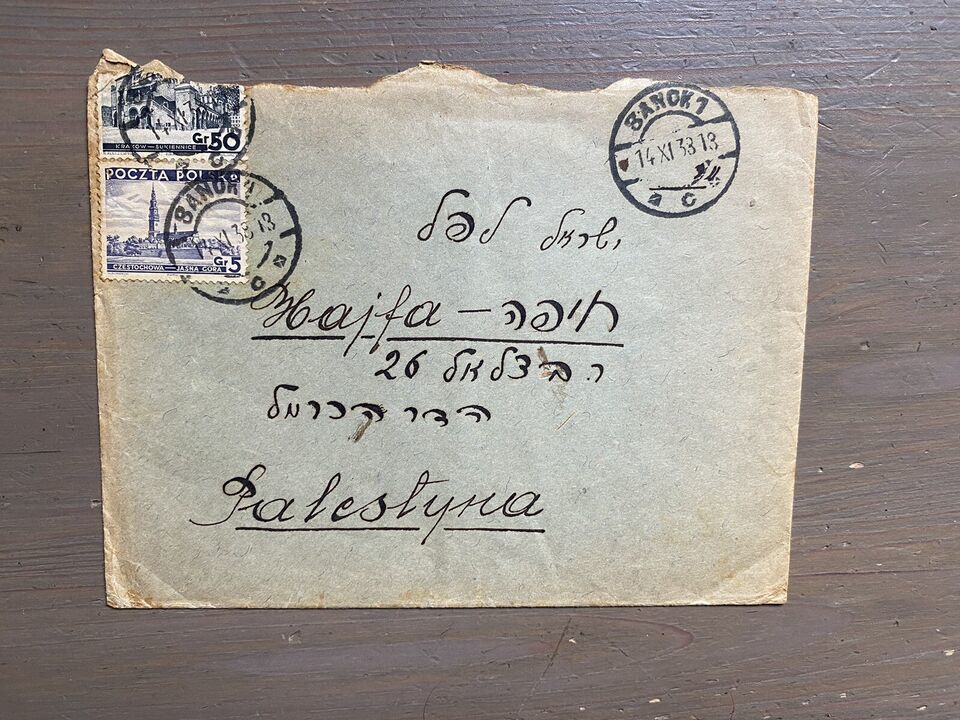 Gr 50
KRAKÓW — SUKIENNICE
POCZTA POLSKA
CZĘSTOCHOWA — JASNA GÓRA
Gr 5
SANOK 1
14 XI 38 18
SANOK 1
14 XI 38 18
ישראל לפל
Hajfa — חיפה
ר. בצלאל 26
הדר הכרמל
Palestyna